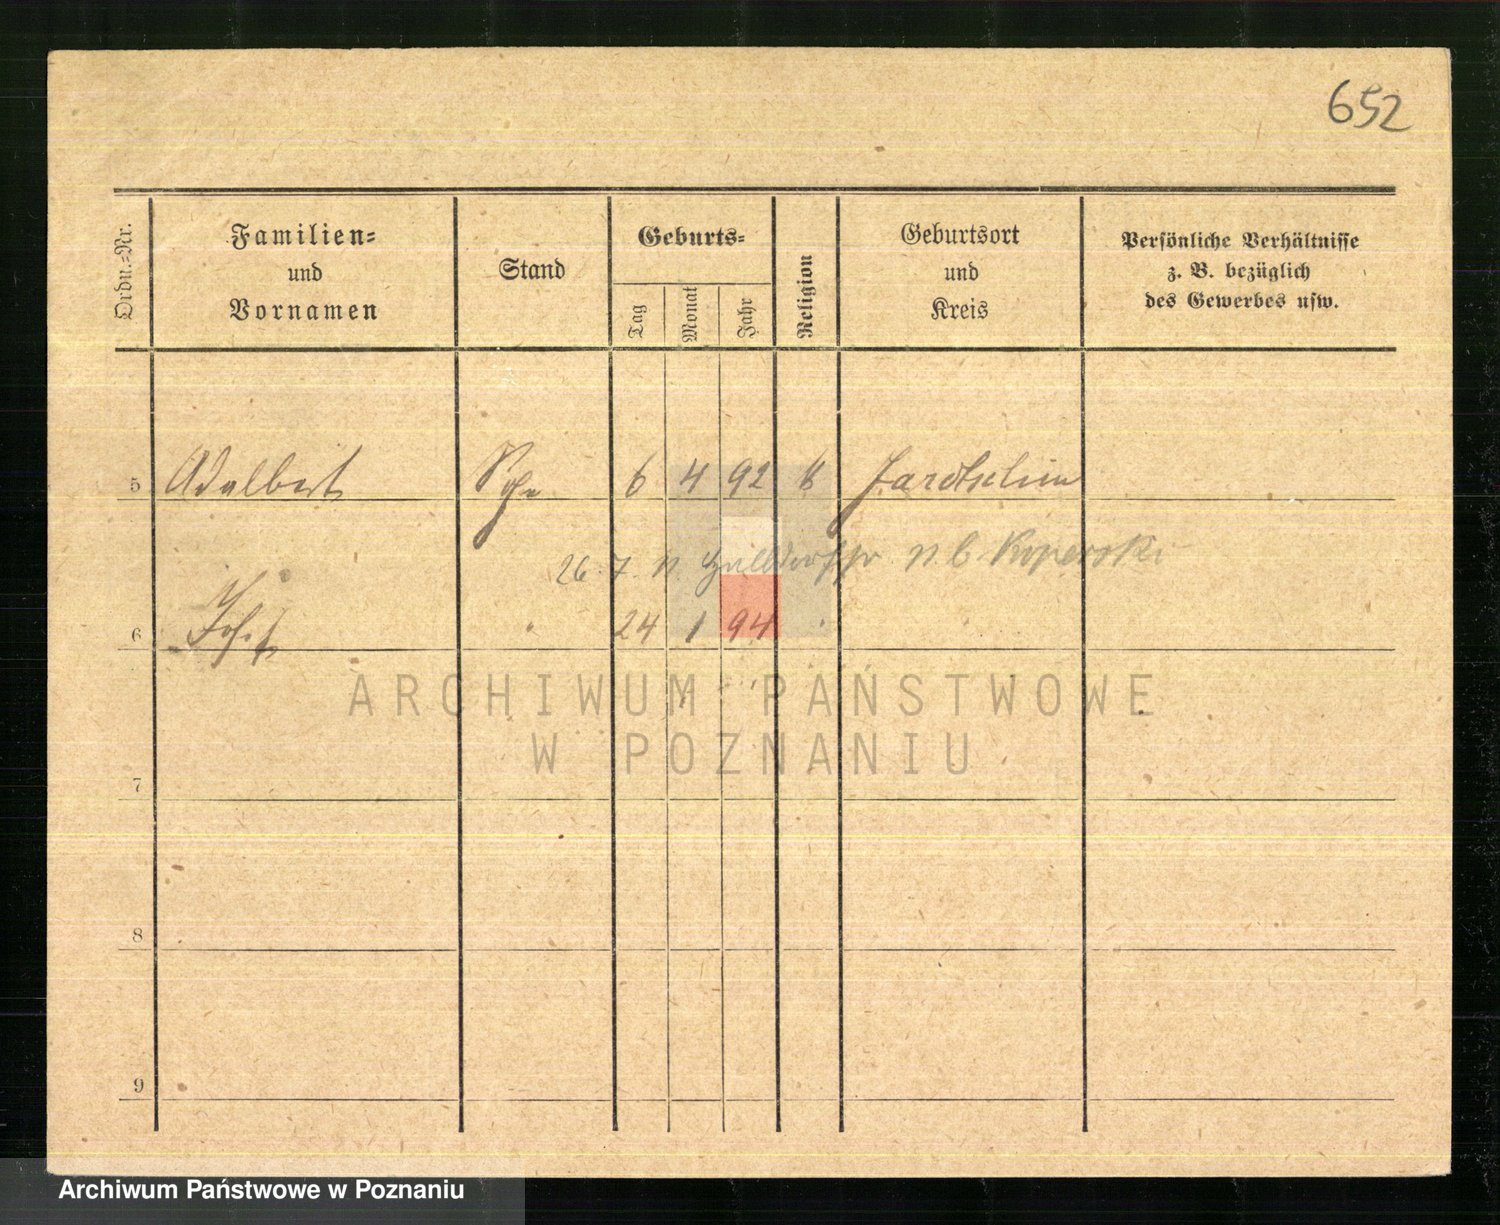 652
Ordn.-Nr.
Familien-
und
Vornamen
Stand
Geburts-
Tag
Monat
Jahr
Religion
Geburtsort
und
Kreis
Persönliche Verhältnisse
z. B. bezüglich
des Gewerbes usw.
5 Adalbert 6 4 92 k
26. 7. n. b. Koperski
6 24 1 94
ARCHIWUM PAŃSTWOWE
W POZNANIU
7
8
9
Archiwum Państwowe w Poznaniu